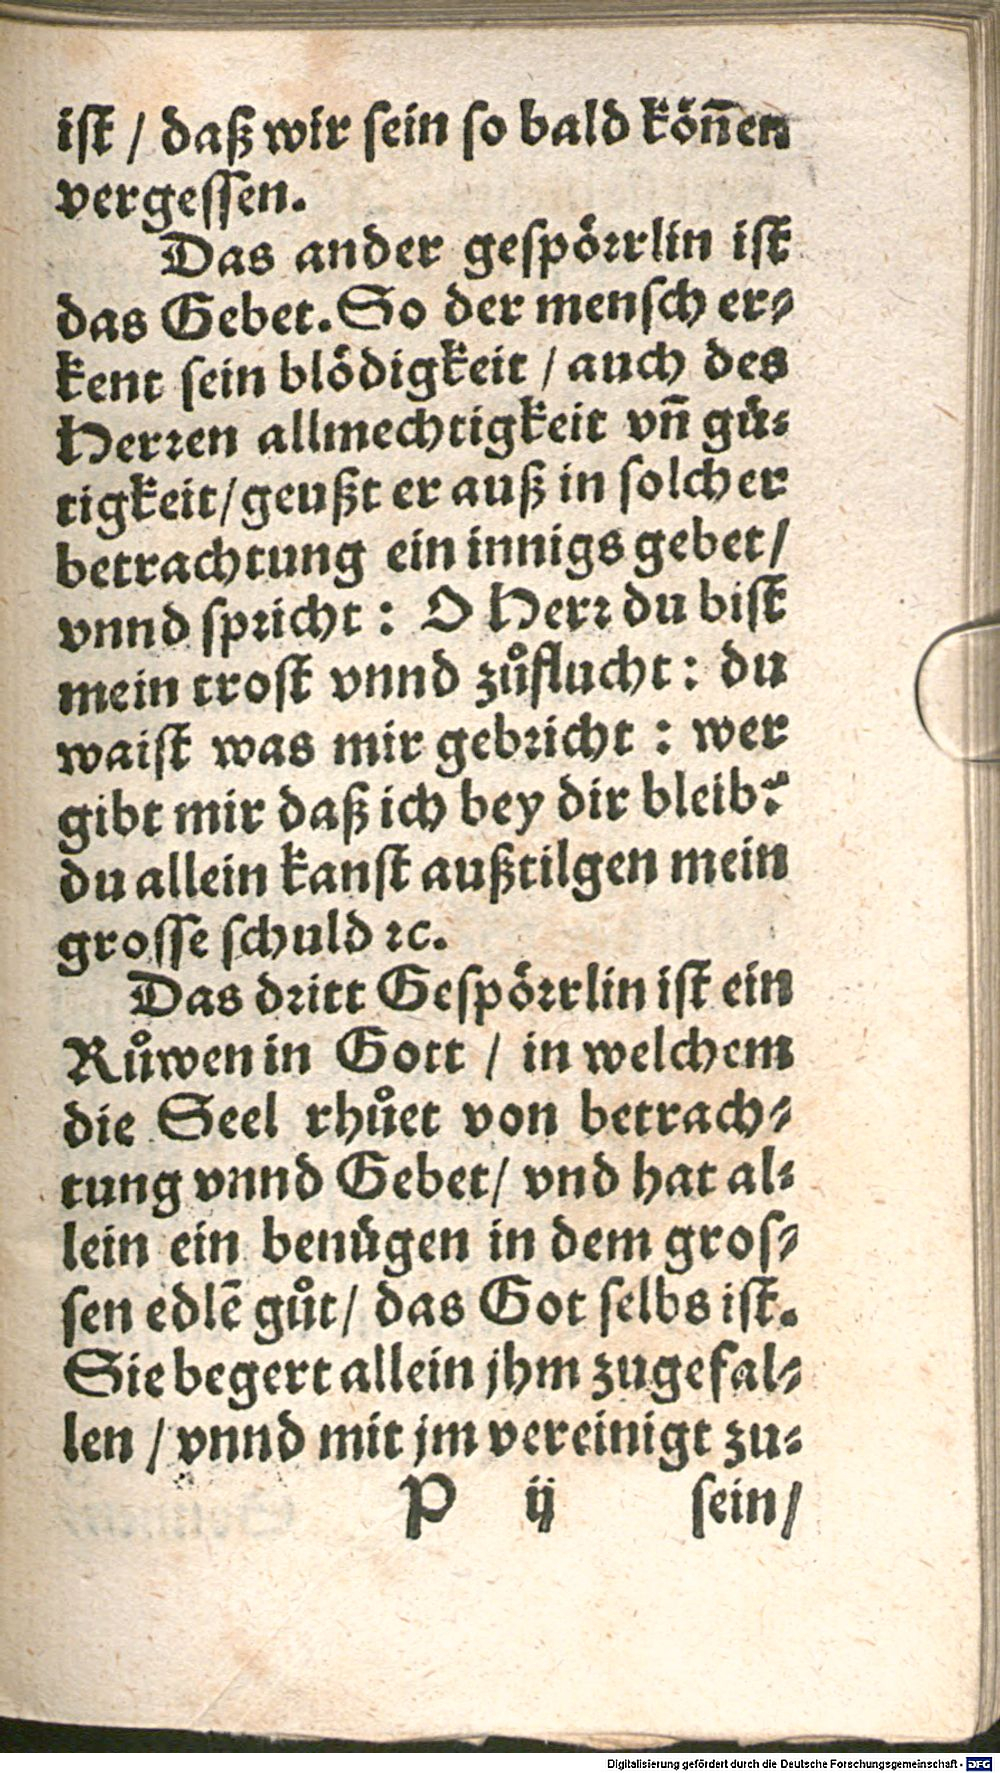 ist / daß wir sein so bald köñen
vergessen.
Das ander gespörrlin ist
das Gebet. So der mensch er⸗
kent sein blödigkeit / auch des
Herren allmechtigkeit vñ gü⸗
tigkeit / geußt er auß in solcher
betrachtung ein innigs gebet /
vnnd spricht : O Herr du bist
mein trost vnnd zůflucht : du
waist was mir gebricht : wer
gibt mir daß ich bey dir bleib?
du allein kanst außtilgen mein
grosse schuld ꝛc.
Das dritt Gespörrlin ist ein
Růwen in Gott / in welchem
die Seel rhůet von betrach⸗
tung vnnd Gebet / vnd hat al⸗
lein ein benügen in dem gros⸗
sen edlē gůt / das Got selbs ist.
Sie begert allein jhm zugefal⸗
len / vnnd mit jm vereinigt zu⸗
P ij sein /
Digitalisierung gefördert durch die Deutsche Forschungsgemeinschaft - DFG